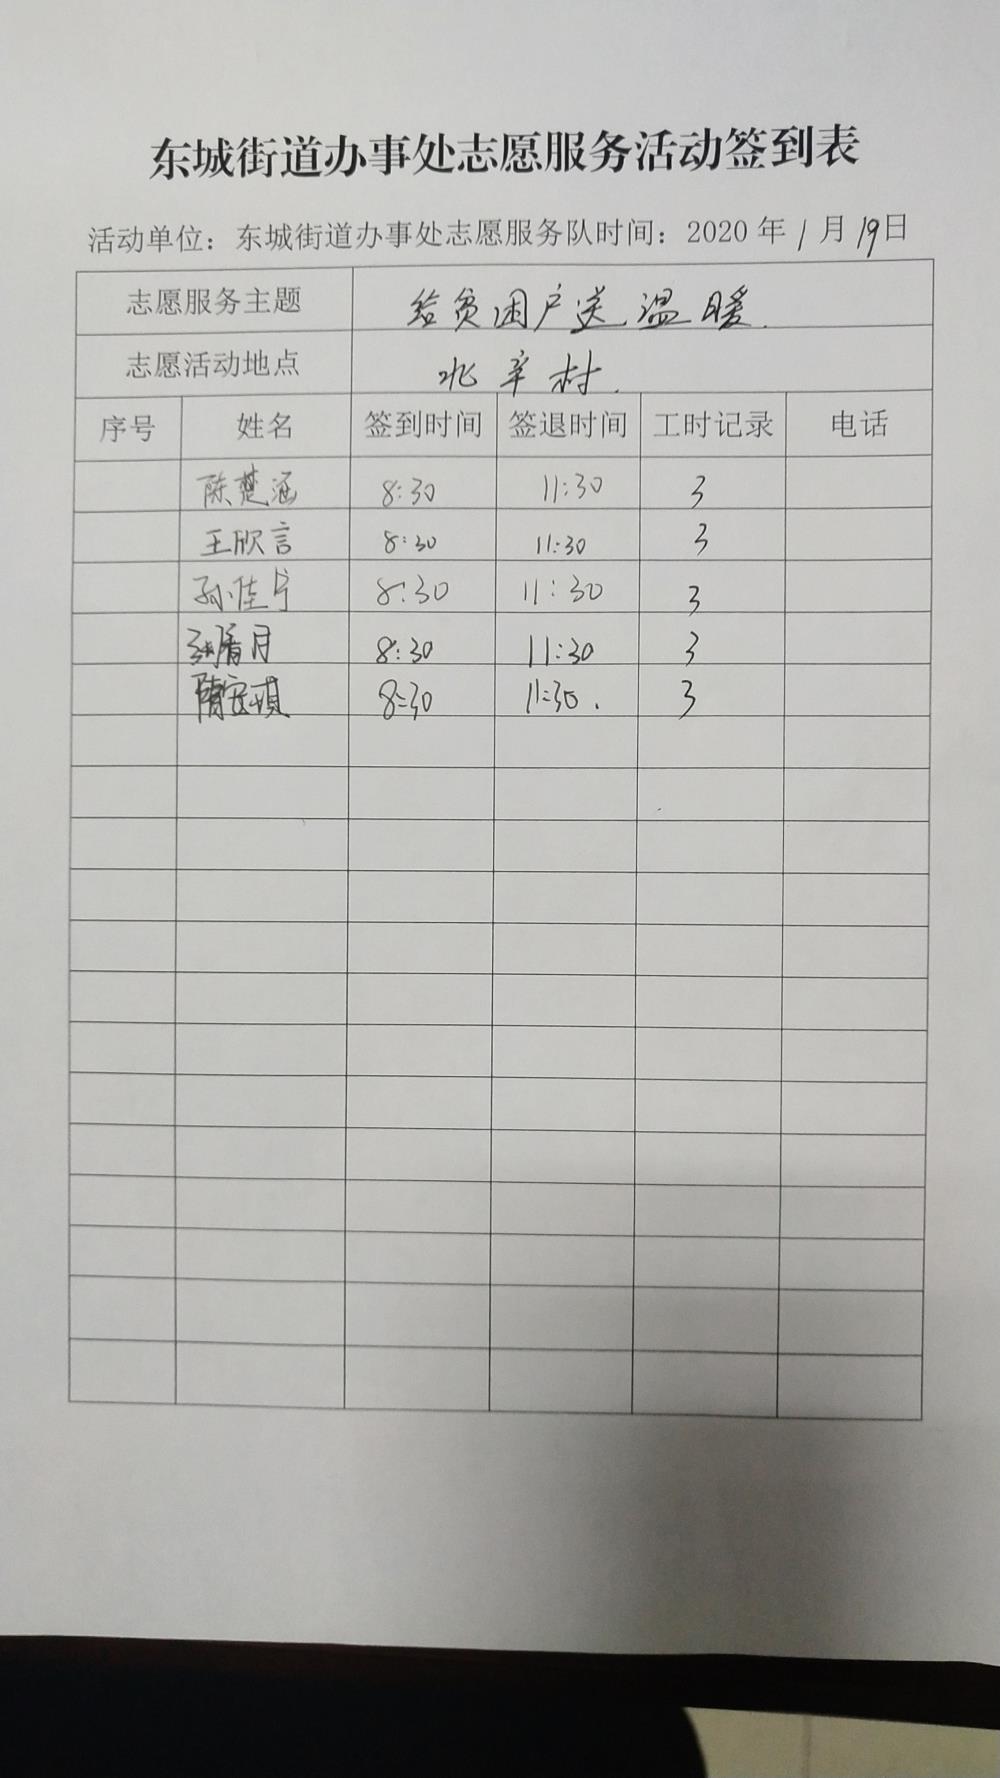 东城街道办事处志愿服务活动签到表
活动单位：东城街道办事处志愿服务队时间：2020 年 1 月 19 日
志愿服务主题 给贫困户送温暖.
志愿活动地点 兆辛村.
序号 姓名 签到时间 签退时间 工时记录 电话
陈楚涵 8:30 11:30 3
王欣言 8:30 11:30 3
孙佳宁 8:30 11:30 3
8:30 11:30 3
隋安琪 8:30 11:30. 3